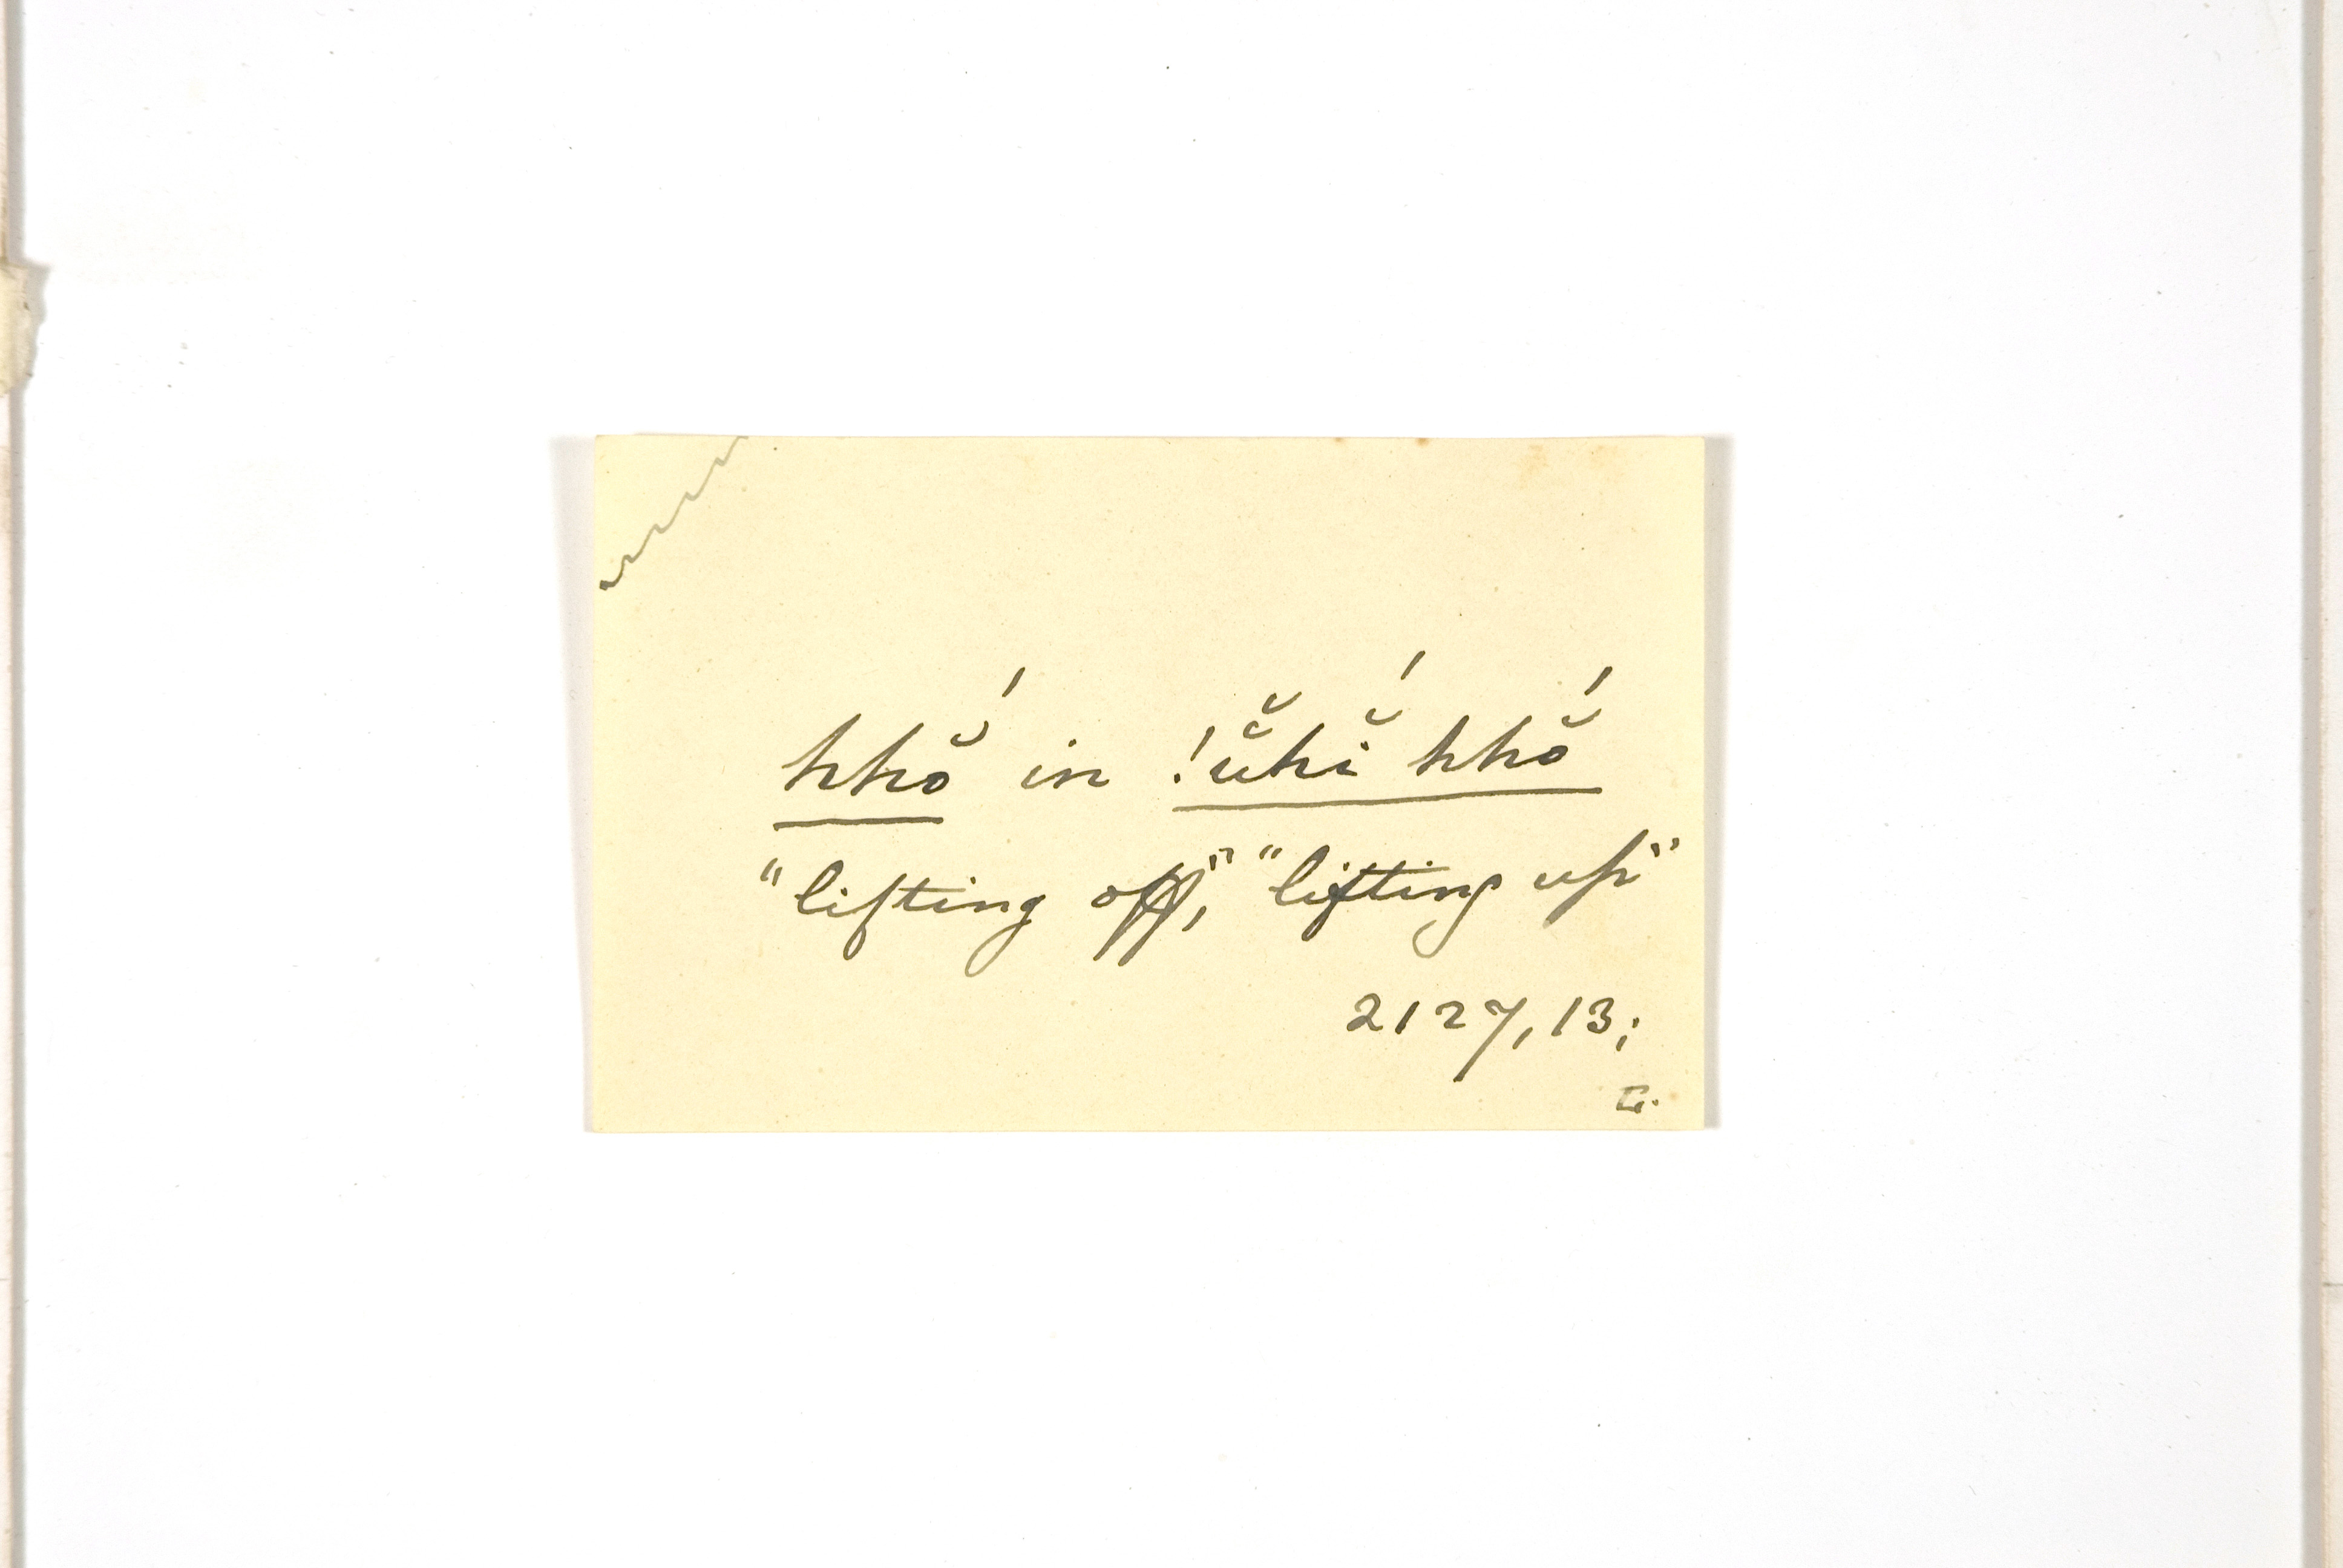 hhŏ́ in !ŭ̆hĭ́ hhŏ́
"lifting off," "lifting up"
2127, 13;
G.